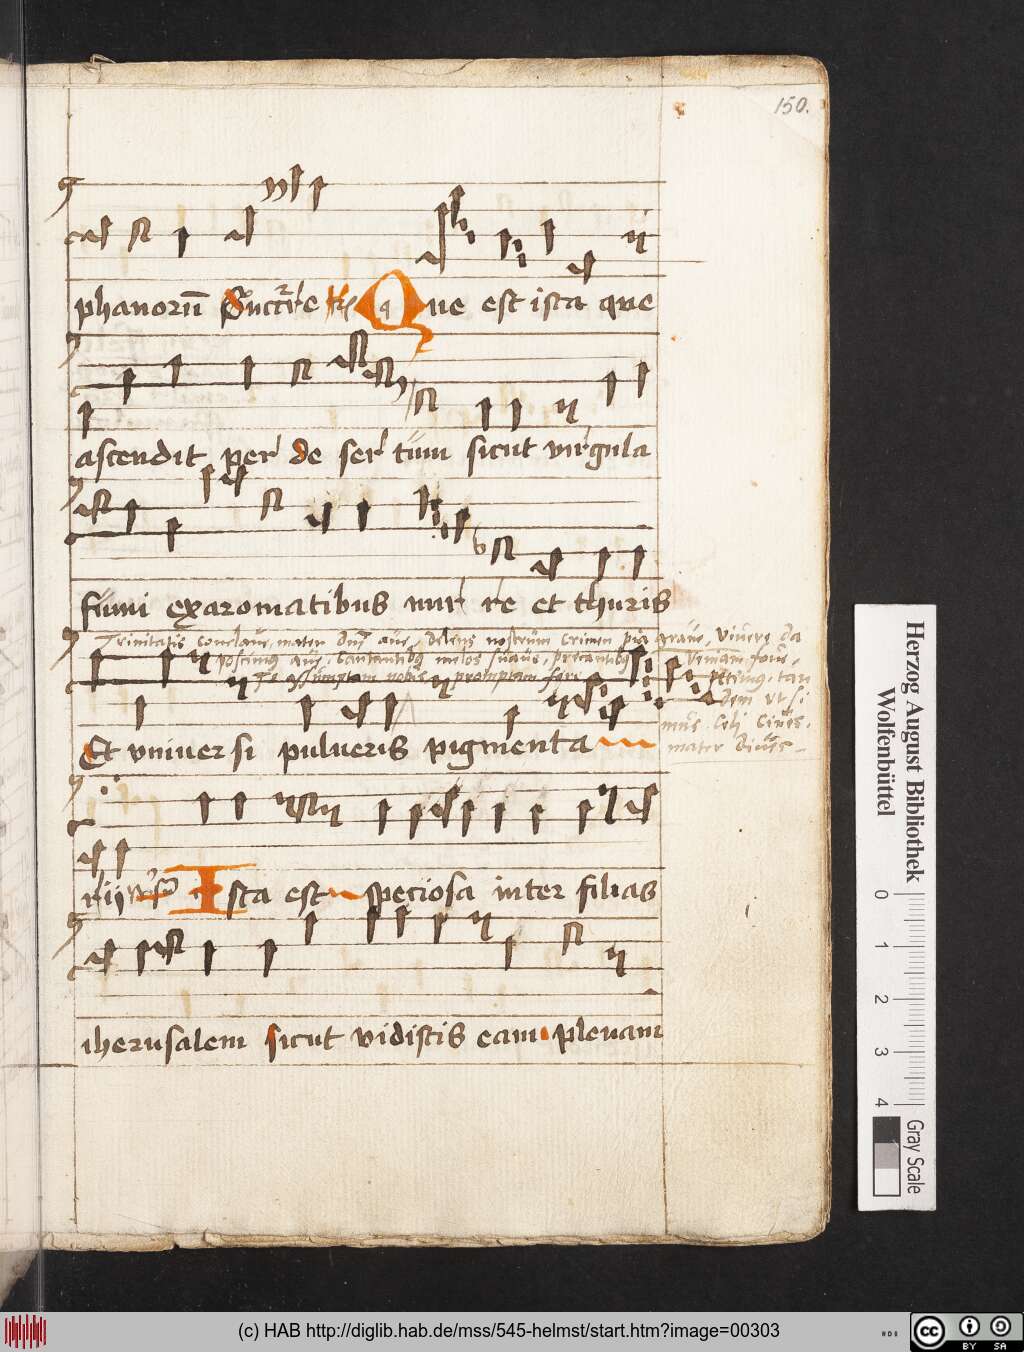 150.
phanorū Que est ista que
ascendit per de ser tum sicut virgula
fumi exaromatibus mir re et thuris
Trinitatis conclave, mater aue, delens nostrum crimen pia graue, Viuere da
poscimus cantantibus melos suaue, precantibus Veniam
Te assumptam nobis promptam
tan
dem vt si
mus celi ciues.
mater
Et vniuer si pulueris pigmenta
rii Ista est speciosa inter filias
iherusalem sicut vidistis eam plenam
Herzog August Bibliothek
Wolfenbüttel
0 1 2 3 4
Gray Scale
(c) HAB http://diglib.hab.de/mss/545-helmst/start.htm?image=00303
cc BY SA